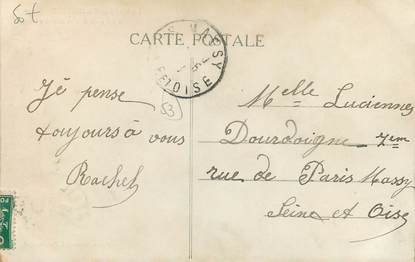 CARTE POSTALE
MASSY
S.-ET-OISE
53
Je pense
toujours à vous
Rachel
Melle Lucienne
Dourdoigne 7em
rue de Paris Massy
Seine et Oise